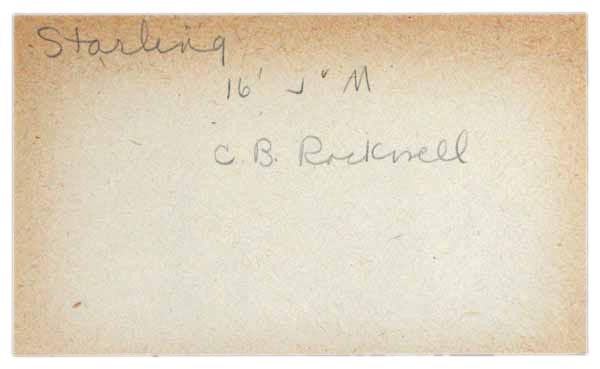 Starling
16' J" M
C. B. Rockwell